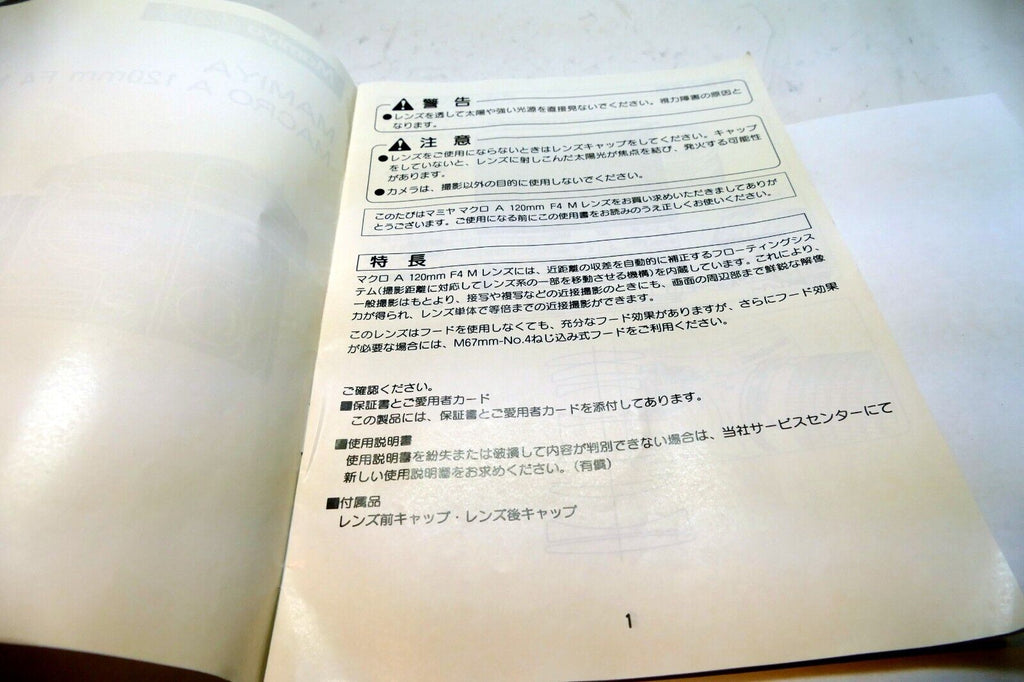 警告
●レンズを透して太陽や強い光源を直接見ないでください。視力障害の原因と
なります。
注意
●レンズをご使用にならないときはレンズキャップをしてください。キャップ
をしていないと、レンズに射しこんだ太陽光が焦点を結び、発火する可能性
があります。
●カメラは、撮影以外の目的に使用しないでください。
このたびはマミヤ マクロ A 120mm F4 M レンズをお買い求めいただきましてありが
とうございます。ご使用になる前にこの使用書をお読みのうえ正しくお使いください。
特長
マクロ A 120mm F4 M レンズには、近距離の収差を自動的に補正するフローティングシス
テム(撮影距離に対応してレンズ系の一部を移動させる機構)を内蔵しています。これにより、
一般撮影はもとより、接写や複写などの近接撮影のときにも、画面の周辺部まで鮮鋭な解像
力が得られ、レンズ単体で等倍までの近接撮影ができます。
このレンズはフードを使用しなくても、充分なフード効果がありますが、さらにフード効果
が必要な場合には、M67mm-No.4ねじ込み式フードをご利用ください。
ご確認ください。
■保証書とご愛用者カード
この製品には、保証書とご愛用者カードを添付してあります。
■使用説明書
使用説明書を紛失または破損して内容が判別できない場合は、当社サービスセンターにて
新しい使用説明書をお求めください。(有償)
■付属品
レンズ前キャップ・レンズ後キャップ
1